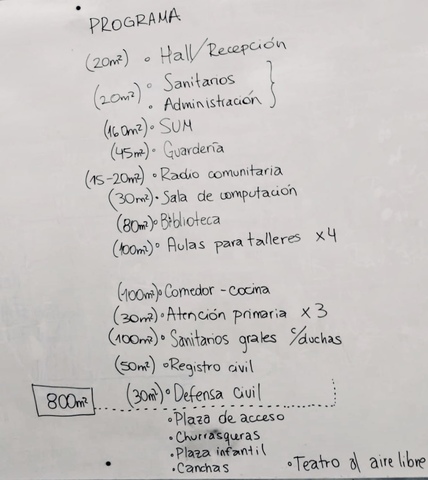 PROGRAMA
(20m²) • Hall/Recepción
(20m²) • Sanitarios
• Administración
(160m²) • SUM
(45m²) • Guardería
(15-20m²) • Radio comunitaria
(30m²) • Sala de computación
(80m²) • Biblioteca
(100m²) • Aulas para talleres x4
(100m²) • Comedor - cocina
(30m²) • Atención primaria x3
(100m²) • Sanitarios grales c/duchas
(50m²) • Registro civil
800m² (30m²) • Defensa Civil
• Plaza de acceso
• Churrasqueras
• Plaza infantil
• Canchas • Teatro al aire libre